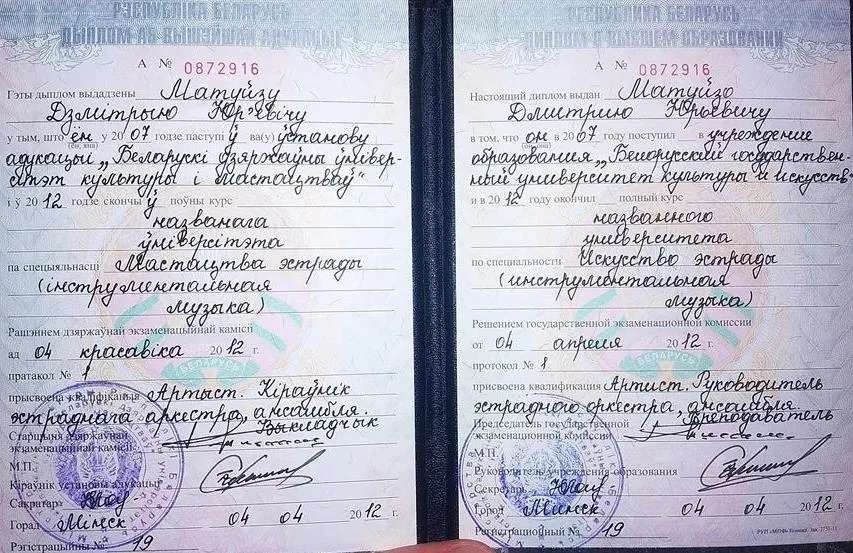 РЭСПУБЛІКА БЕЛАРУСЬ
ДЫПЛОМ АБ ВЫШЭЙШАЙ АДУКАЦЫІ
А № 0872916
Гэты дыплом выдадзены Матуйзу
Дзмітрыю Юр'евічу
у тым, што ён у 2007 годзе паступіў ва(у) ўстанову
(ён, яна)
адукацыі „Беларускі дзяржаўны ўнівер-
сітэт культуры і мастацтваў"
і ў 2012 годзе скончыў поўны курс
названага
ўніверсітэта
па спецыяльнасці Мастацтва эстрады
(інструментальная
музыка)
Рашэннем дзяржаўнай экзаменацыйнай камісіі
ад 04 красавіка 2012 г.
пратакол № 1
прысвоена кваліфікацыя Артыст. Кіраўнік
эстраднага аркестра, ансамбля.
Выкладчык
Старшыня дзяржаўнай
экзаменацыйнай камісіі
М.П.
Кіраўнік установы адукацыі
Сакратар
Горад Мінск 04 04 2012 г.
Рэгістрацыйны № 19
РЕСПУБЛИКА БЕЛАРУСЬ
ДИПЛОМ О ВЫСШЕМ ОБРАЗОВАНИИ
А № 0872916
Настоящий диплом выдан Матуйзо
Дмитрию Юрьевичу
в том, что он в 2007 году поступил в учреждение
(он, она)
образования „Белорусский государствен-
ный университет культуры и искусств
и в 2012 году окончил полный курс
названного
университета
по специальности Искусство эстрады
(инструментальная
музыка)
Решением государственной экзаменационной комиссии
от 04 апреля 2012 г.
протокол № 1
БЕЛАРУСЬ
присвоена квалификация Артист. Руководитель
эстрадного оркестра, ансамбля.
Преподаватель
Председатель государственной
экзаменационной комиссии
М.П.
Руководитель учреждения образования
Секретарь
Город Минск 04 04 2012 г.
Регистрационный № 19